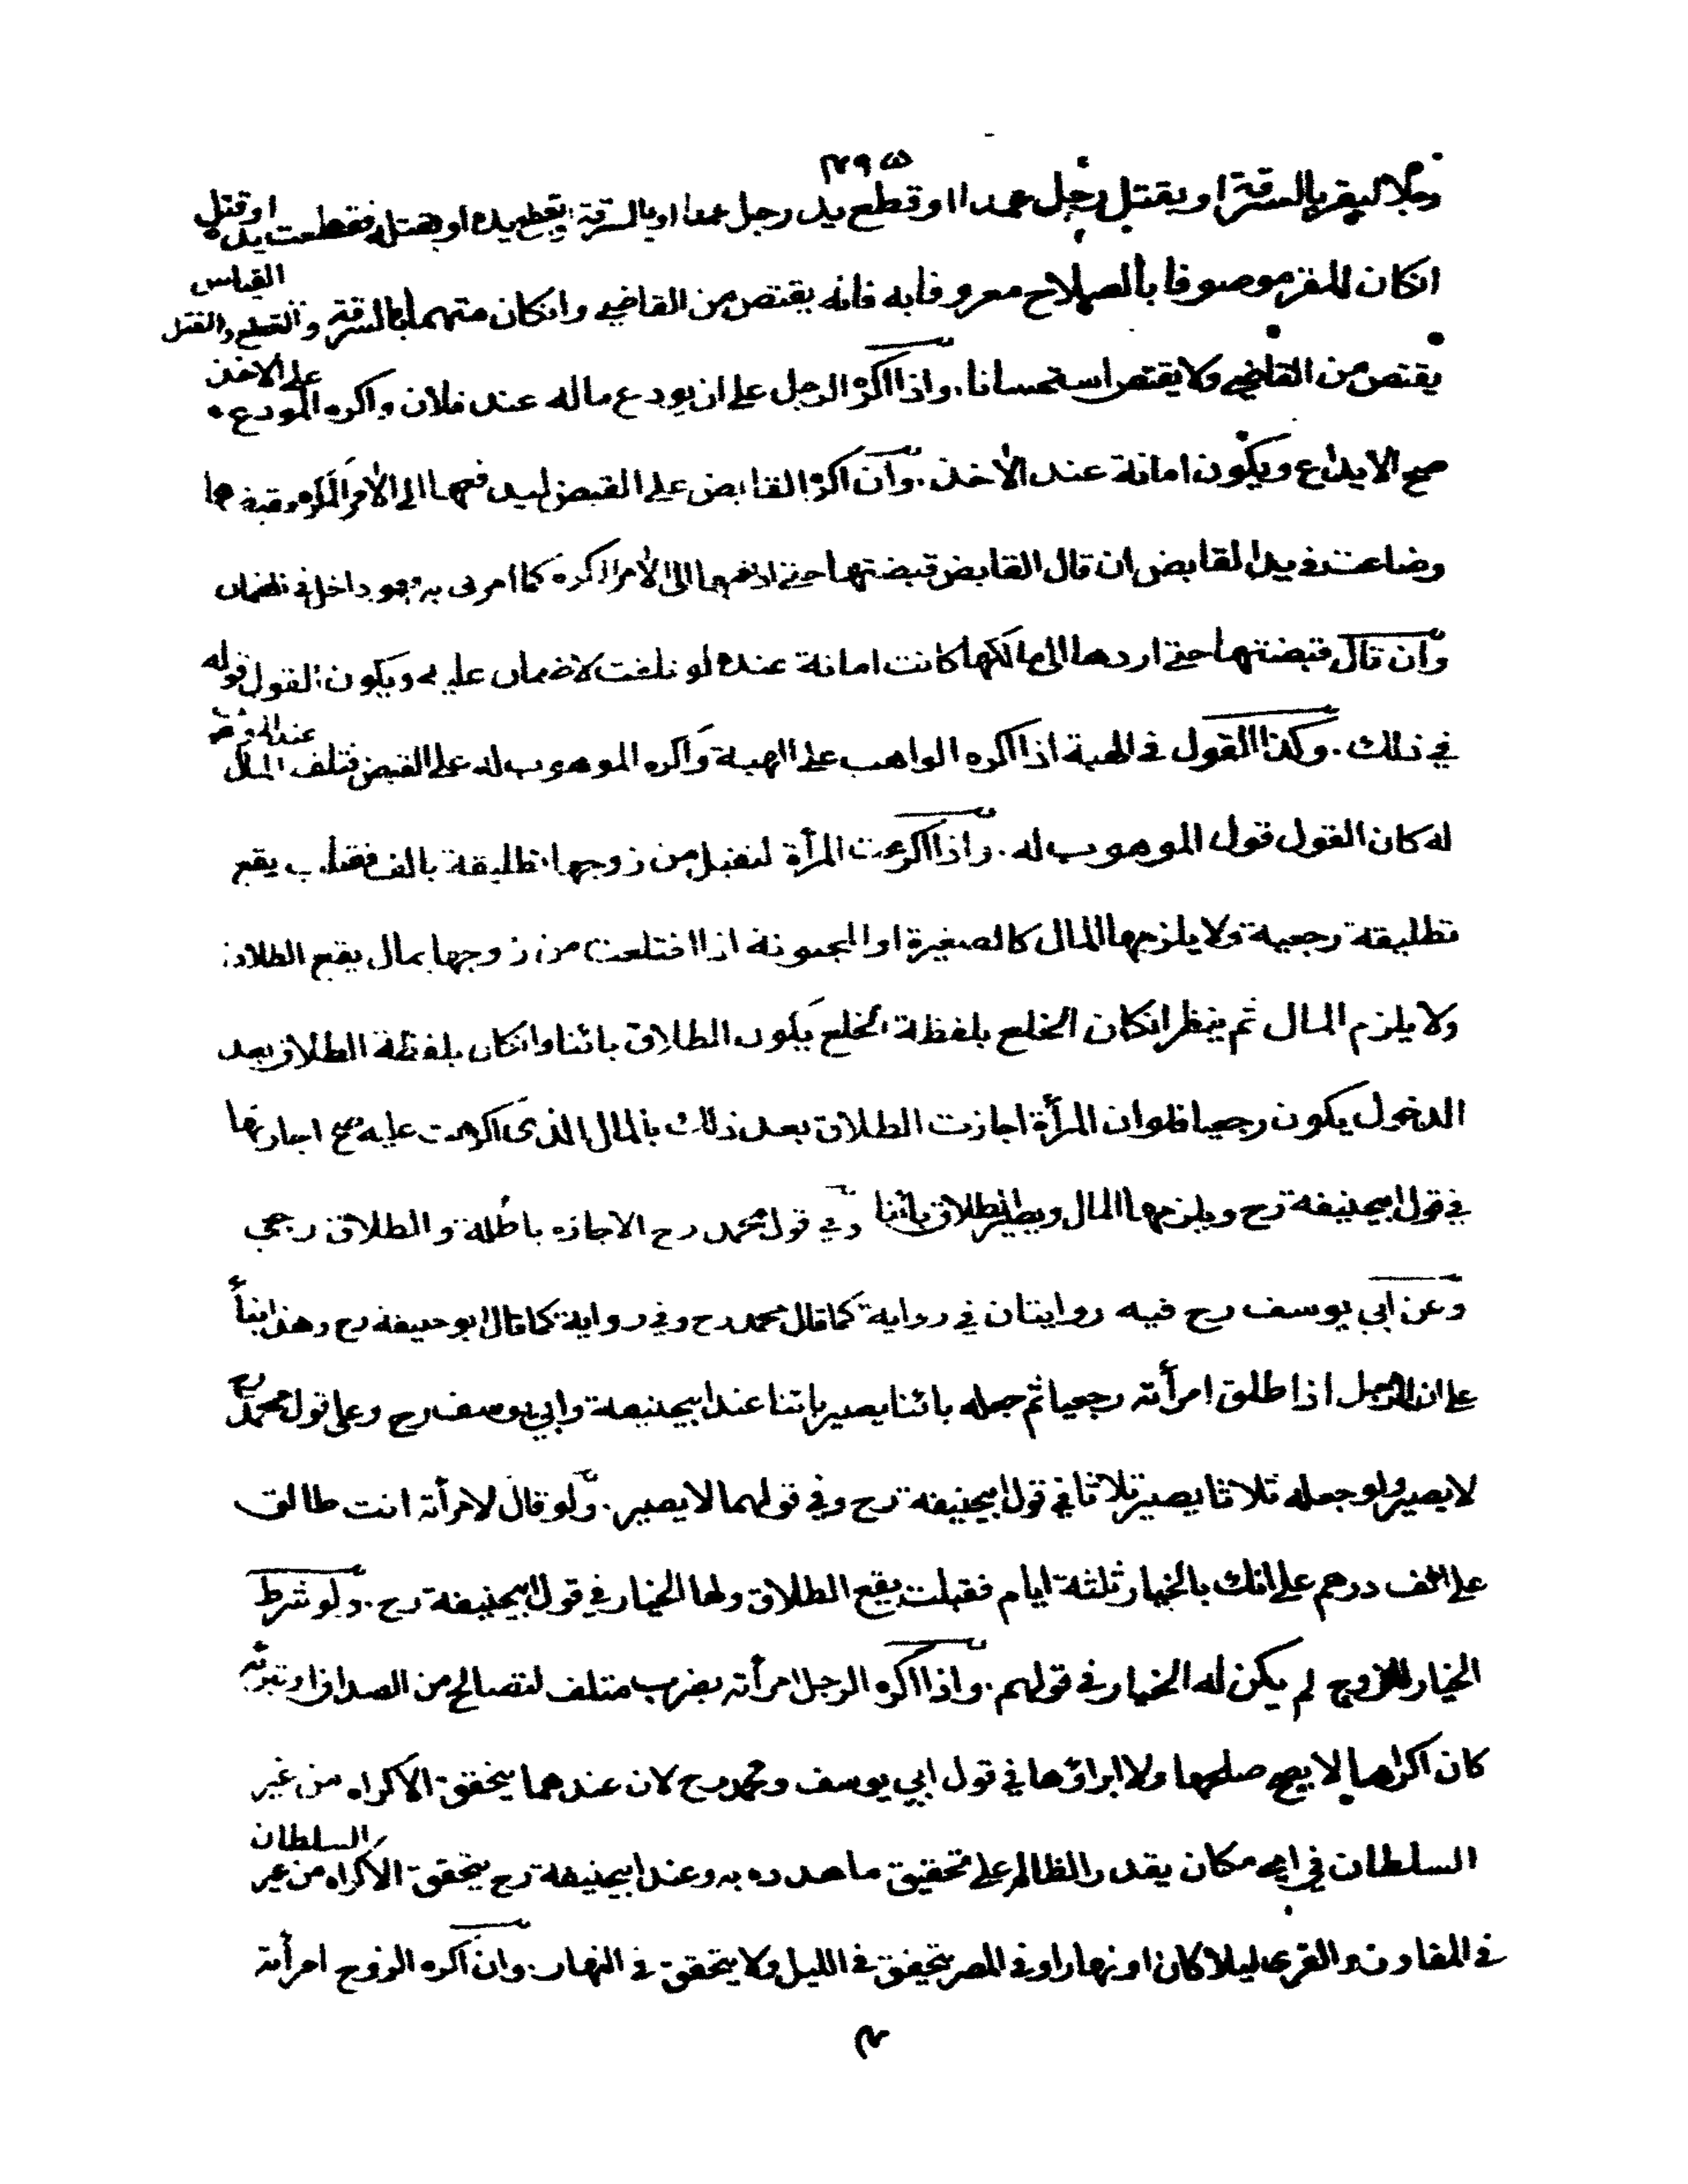 رجلا ليقر بالسرقة او بقتل رجل عمدا او قطع يد رجل عمدا او بالسرقة بقطع يده او بقتله فقطعت يده او قتل
انكان المقر موصوفا بالصلاح معروفا به فانه يقتص من القاضي وانكان متهما بالسرقة والقطع والقتل القياس
يقتص من القاضي ولا يقتص استحسانا. واذا اكره الرجل على ان يودع ماله عند فلان واكره المودع على الاخذ
صح الايداع ويكون امانة عند الأخذ. وان اكره القابض على القبض ليدفعها الى الأمر المكره وقبضها
وضاعت في يد القابض ان قال القابض قبضتها حتى ادفعها الى الأمر المكره كما امرني به فهو داخل في الضمان
وان قال قبضتها حتى اردها الى مالكها كانت امانة عنده لو تلفت لا ضمان عليه ويكون القول قوله
في ذلك. وكذا القول في الهبة اذا اكره الواهب على الهبة واكره الموهوب له على القبض فتلف المال عند الموهوب
له كان القول قول الموهوب له. واذا اكرهت المرأة لتقبل من زوجها تطليقة بالف فقبلت يقع
تطليقة رجعية ولا يلزمها المال كالصغيرة او المجنونة اذا اختلعت من زوجها بمال يقع الطلاق
ولا يلزم المال ثم ينظر انكان الخلع بلفظة الخلع يكون الطلاق بائنا وانكان بلفظة الطلاق بعد
الدخول يكون رجعيا فلو ان المرأة اجازت الطلاق بعد ذلك بالمال الذى اكرهت عليه صح اجازتها
في قول ابيحنيفة رح ويلزمها المال ويصير الطلاق بائنا وفي قول محمد رح الاجازه باطلة والطلاق رجعي
وعن ابي يوسف رح فيه روايتان في رواية كما قال محمد رح وفي رواية كما قال ابو حنيفة رح وهذا بناء
على ان الرجل اذا طلق امرأته رجعيا ثم جعله بائنا يصير بائنا عند ابيحنيفة وابي يوسف رح وعلى قول محمد رح
لا يصير ولو جعله ثلاثا يصير ثلاثا في قول ابيحنيفة رح وفي قولهما لا يصير. ولو قال لامرأته انت طالق
على الف درهم على انك بالخيار ثلثة ايام فقبلت يقع الطلاق ولها الخيار في قول ابيحنيفة رح. ولو شرط
الخيار للزوج لم يكن له الخيار في قولهم. واذا اكره الرجل امرأته بضرب متلف لتصالح من الصداق او تبرئه
كان اكراها لا يصح صلحها ولا ابراؤها في قول ابي يوسف ومحمد رح لان عندهما يتحقق الاكراه من غير
السلطان في اي مكان يقدر الظالم على تحقيق ما هدده به وعند ابيحنيفة رح يتحقق الاكراه من غير السلطان
في المفاوز والقرى ليلا كان او نهارا وفي المصر يتحقق في الليل ولا يتحقق في النهار. وان اكره الزوج امرأته